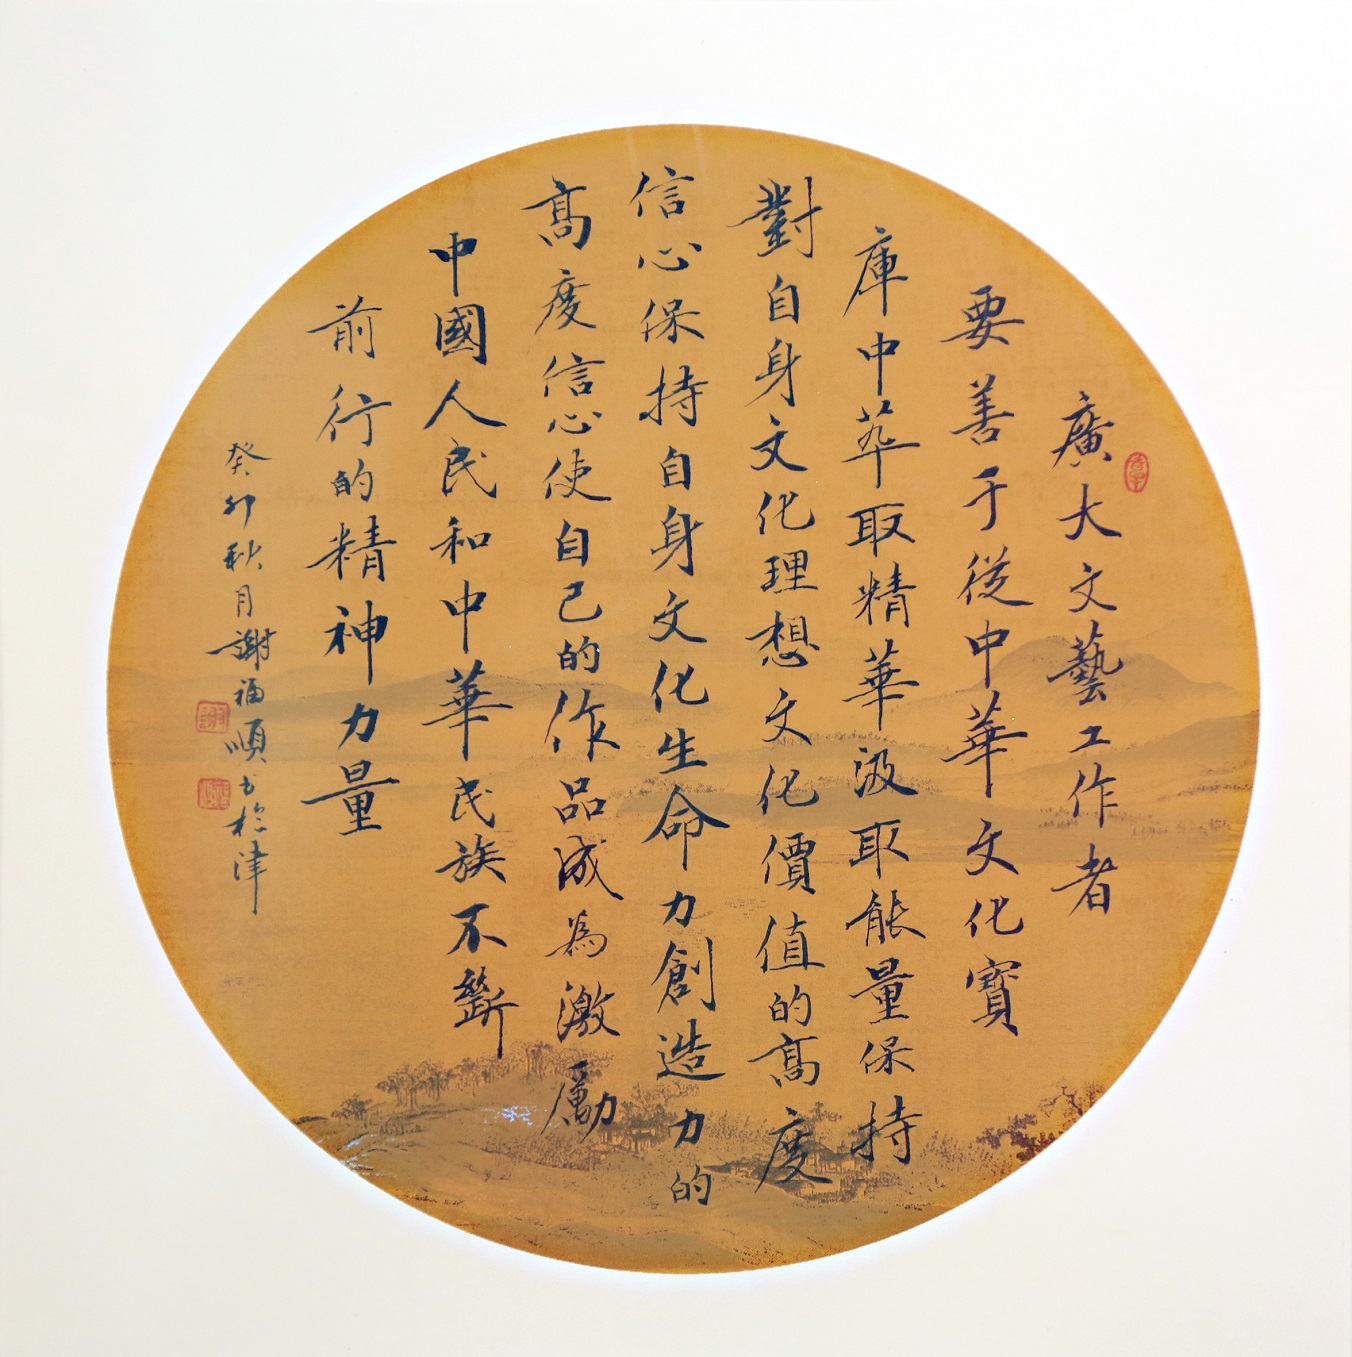 廣大文藝工作者
要善于從中華文化寶
庫中萃取精華汲取能量保持
對自身文化理想文化價值的高度
信心保持自身文化生命力創造力的
高度信心使自己的作品成為激勵
中國人民和中華民族不斷
前行的精神力量
癸卯秋月謝福順書於津